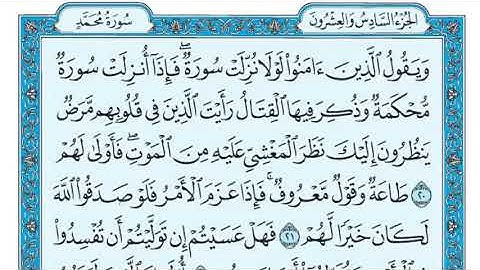 سُورَةُ مُحَمَّدٍ الجُزْءُ السَّادِسُ وَالعِشْرُونَ
وَيَقُولُ الَّذِينَ ءَامَنُوا۟ لَوْلَا نُزِّلَتْ سُورَةٌ ۖ فَإِذَآ أُنزِلَتْ سُورَةٌ
مُّحْكَمَةٌ وَذُكِرَ فِيهَا الْقِتَالُ رَأَيْتَ الَّذِينَ فِى قُلُوبِهِم مَّرَضٌ
يَنظُرُونَ إِلَيْكَ نَظَرَ الْمَغْشِىِّ عَلَيْهِ مِنَ الْمَوْتِ ۖ فَأَوْلَىٰ لَهُمْ
۝٢٠ طَاعَةٌ وَقَوْلٌ مَّعْرُوفٌ ۚ فَإِذَا عَزَمَ الْأَمْرُ فَلَوْ صَدَقُوا۟ اللَّهَ
لَكَانَ خَيْرًا لَّهُمْ ۝٢١ فَهَلْ عَسَيْتُمْ إِن تَوَلَّيْتُمْ أَن تُفْسِدُوا۟